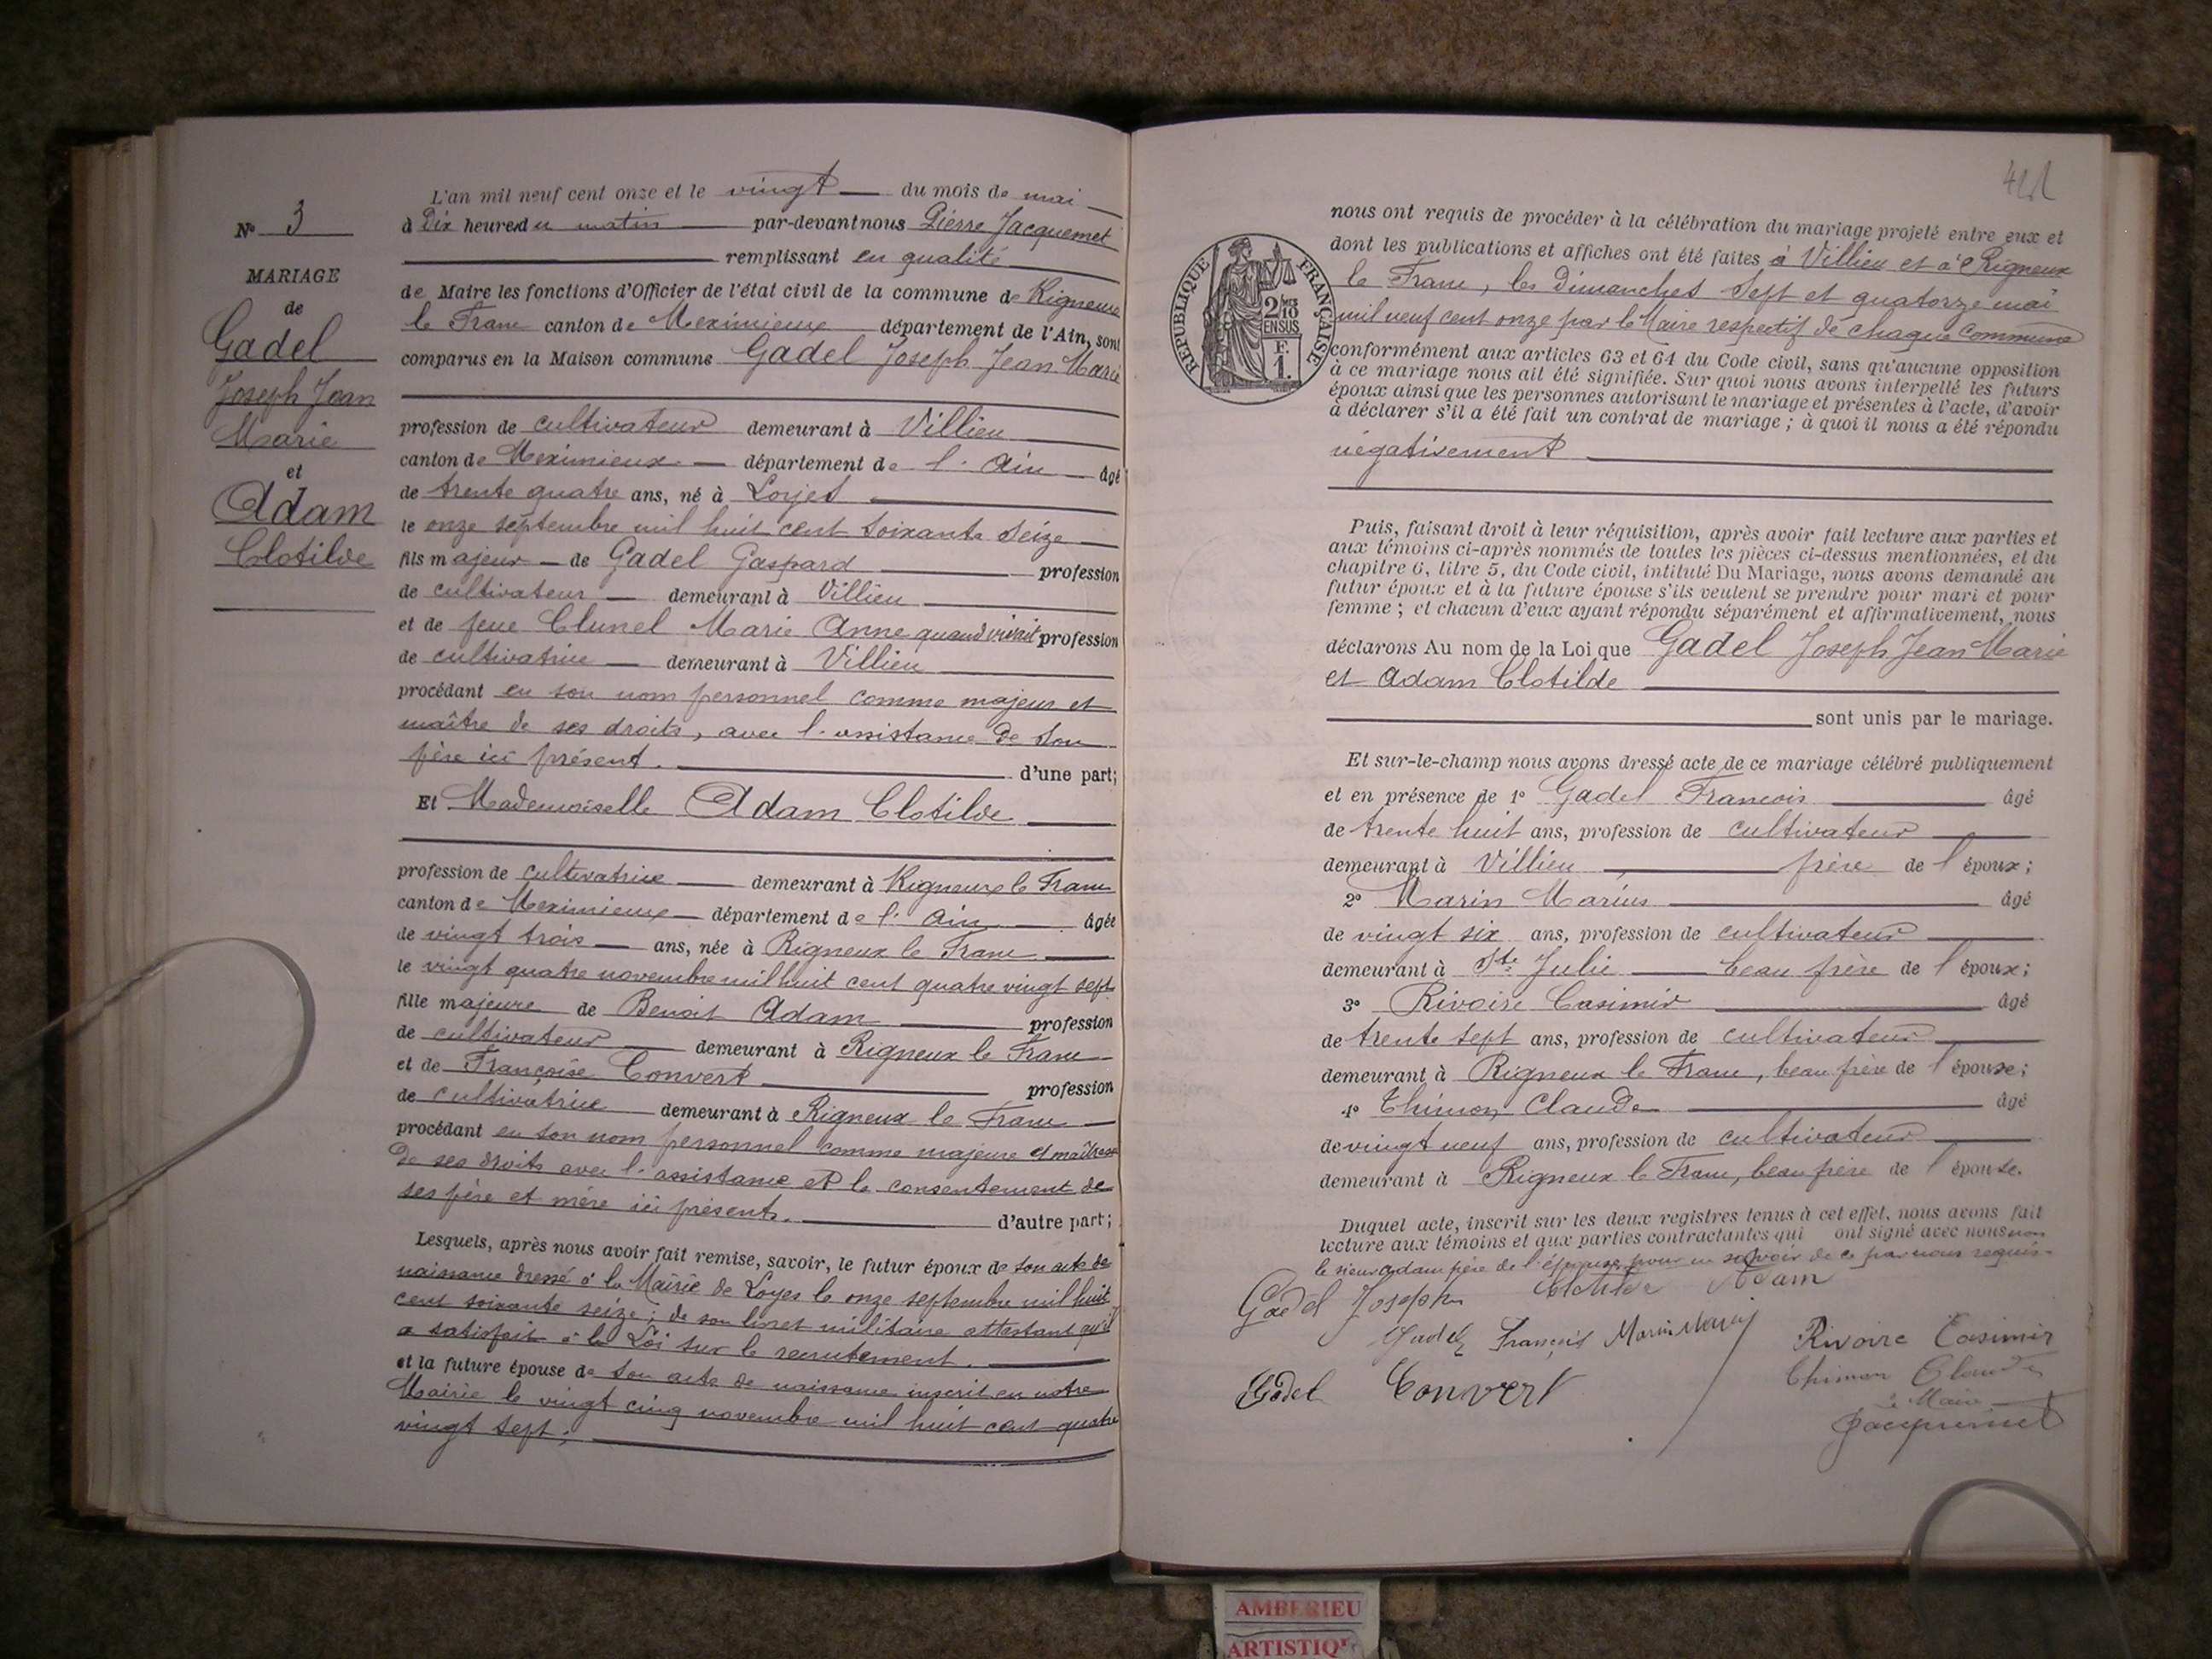 Nº 3
MARIAGE
de
Gadel
Joseph Jean
Marie
et
Adam
Clotilde
L'an mil neuf cent onze et le vingt du mois de mai
à Dix heures du matin par-devant nous Pierre Jacquemet
remplissant en qualité
de Maire les fonctions d'Officier de l'état civil de la commune de Rigneux
le Franc canton de Meximieux département de l'Ain, sont
comparus en la Maison commune Gadel Joseph Jean Marie
profession de cultivateur demeurant à Villieu
canton de Meximieux département de l'Ain âgé
de trente quatre ans, né à Loyes
le onze septembre mil huit cent soixante seize
fils majeur de Gadel Gaspard profession
de cultivateur demeurant à Villieu
et de feue Clunel Marie Anne quand vivait profession
de cultivatrice demeurant à Villieu
procédant en son nom personnel comme majeur et
maître de ses droits, avec l'assistance de son
père ici présent. d'une part;
Et Mademoiselle Adam Clotilde
profession de cultivatrice demeurant à Rigneux le Franc
canton de Meximieux département de l'Ain âgée
de vingt trois ans, née à Rigneux le Franc
le vingt quatre novembre mil huit cent quatre vingt sept
fille majeure de Benoit Adam profession
de cultivateur demeurant à Rigneux le Franc
et de Françoise Convert profession
de cultivatrice demeurant à Rigneux le Franc
procédant en son nom personnel comme majeure et maîtresse
de ses droits avec l'assistance et le consentement de
ses père et mère ici présents. d'autre part;
Lesquels, après nous avoir fait remise, savoir, le futur époux de son acte de
naissance dressé à la Mairie de Loyes le onze septembre mil huit
cent soixante seize; de son livret militaire attestant qu'il
a satisfait à la Loi sur le recrutement.
et la future épouse de son acte de naissance inscrit en notre
Mairie le vingt cinq novembre mil huit cent quatre
vingt sept;
RÉPUBLIQUE FRANÇAISE
2/10 EN SUS
F. 1.
nous ont requis de procéder à la célébration du mariage projeté entre eux et
dont les publications et affiches ont été faites à Villieu et à Rigneux
le Franc, les Dimanches Sept et quatorze mai
mil neuf cent onze par le Maire respectif de chaque commune
conformément aux articles 63 et 64 du Code civil, sans qu'aucune opposition
à ce mariage nous ait été signifiée. Sur quoi nous avons interpellé les futurs
époux ainsi que les personnes autorisant le mariage et présentes à l'acte, d'avoir
à déclarer s'il a été fait un contrat de mariage; à quoi il nous a été répondu
négativement
Puis, faisant droit à leur réquisition, après avoir fait lecture aux parties et
aux témoins ci-après nommés de toutes les pièces ci-dessus mentionnées, et du
chapitre 6, titre 5, du Code civil, intitulé Du Mariage, nous avons demandé au
futur époux et à la future épouse s'ils veulent se prendre pour mari et pour
femme; et chacun d'eux ayant répondu séparément et affirmativement, nous
déclarons Au nom de la Loi que Gadel Joseph Jean Marie
et Adam Clotilde
sont unis par le mariage.
Et sur-le-champ nous avons dressé acte de ce mariage célébré publiquement
et en présence de 1º Gadel François âgé
de trente huit ans, profession de cultivateur
demeurant à Villieu, frère de l'époux;
2º Marin Marius âgé
de vingt six ans, profession de cultivateur
demeurant à Ste Julie beau frère de l'époux;
3º Rivoire Casimir âgé
de trente sept ans, profession de cultivateur
demeurant à Rigneux le Franc, beau frère de l'épouse;
4º Thimon Claude âgé
de vingt neuf ans, profession de cultivateur
demeurant à Rigneux le Franc, beau frère de l'épouse.
Duquel acte, inscrit sur les deux registres tenus à cet effet, nous avons fait
lecture aux témoins et aux parties contractantes qui ont signé avec nous non
le sieur Adam père de l'épouse pour ne savoir de ce par nous requis
Gadel Joseph Clotilde Adam
Gadel François Marin Marius Rivoire Casimir
Gadel Convert Thimon Claude
Le Maire
Jacquemet
AMBERIEU
ARTISTIQU